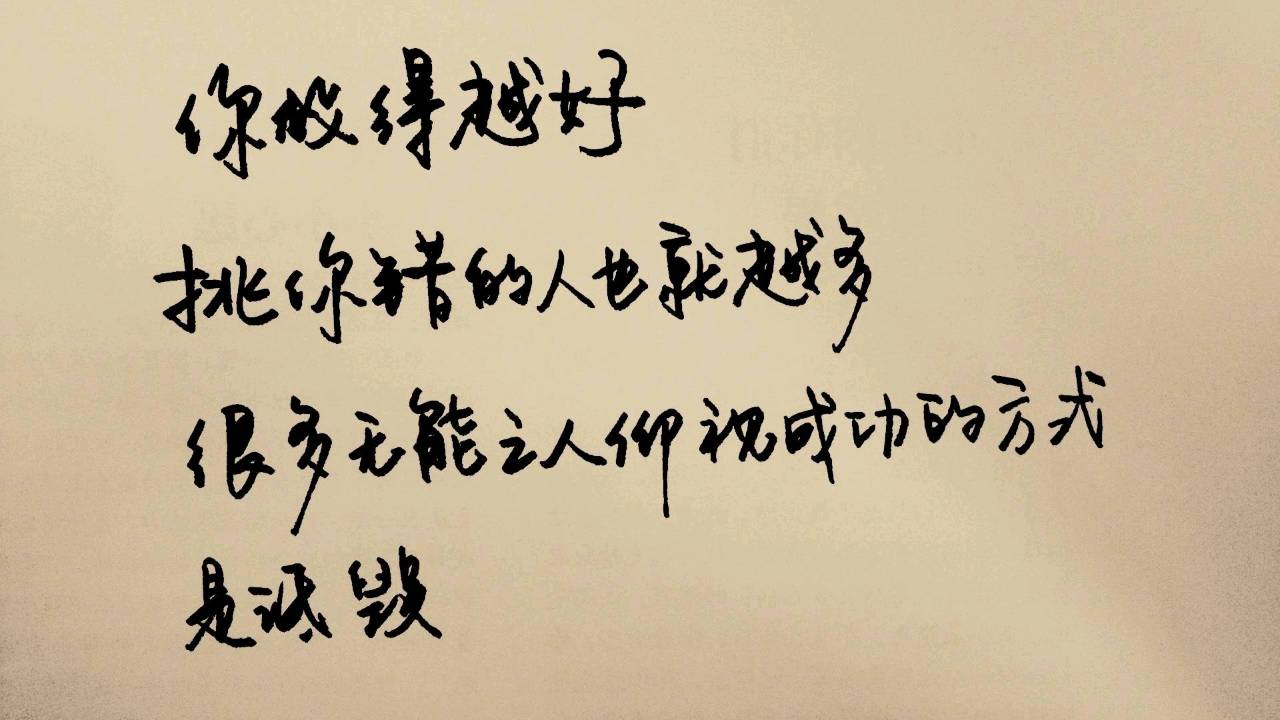 你做得越好
挑你错的人也就越多
很多无能之人仰视成功的方式
是诋毁